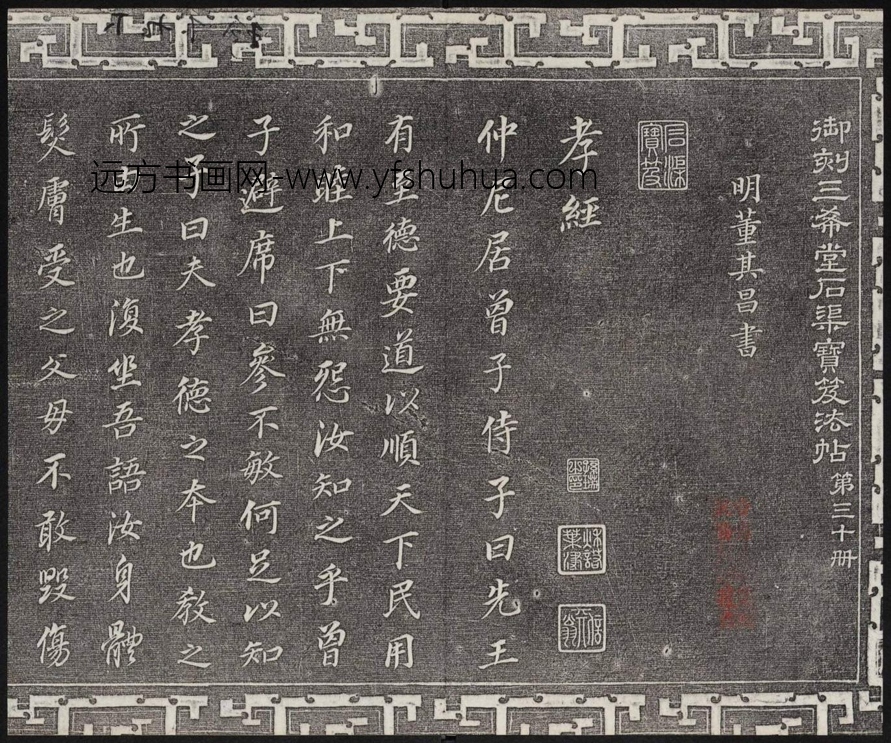 御刻三希堂石渠寶笈法帖 第三十册
明董其昌書
石渠寶笈
孝經
仲尼居曾子侍子曰先王
有至德要道以順天下民用
和睦上下無怨汝知之乎曾
子避席曰參不敏何足以知
之子曰夫孝德之本也教之
所由生也復坐吾語汝身體
髮膚受之父母不敢毀傷
远方书画网-www.yfshuhua.com